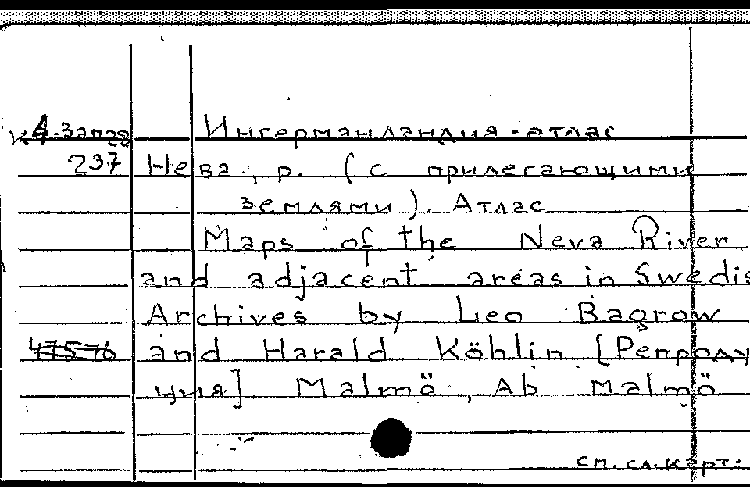 К4-Запад Ингерманландия - атлас
237 Нева, р. (с прилегающими
землями). Атлас
Maps of the Neva River
and adjacent areas in Swedis
Archives by Leo Bagrow
47576 and Harald Köhlin [Репроду
ция] Malmö, Ab Malmö
см. сл. карт.